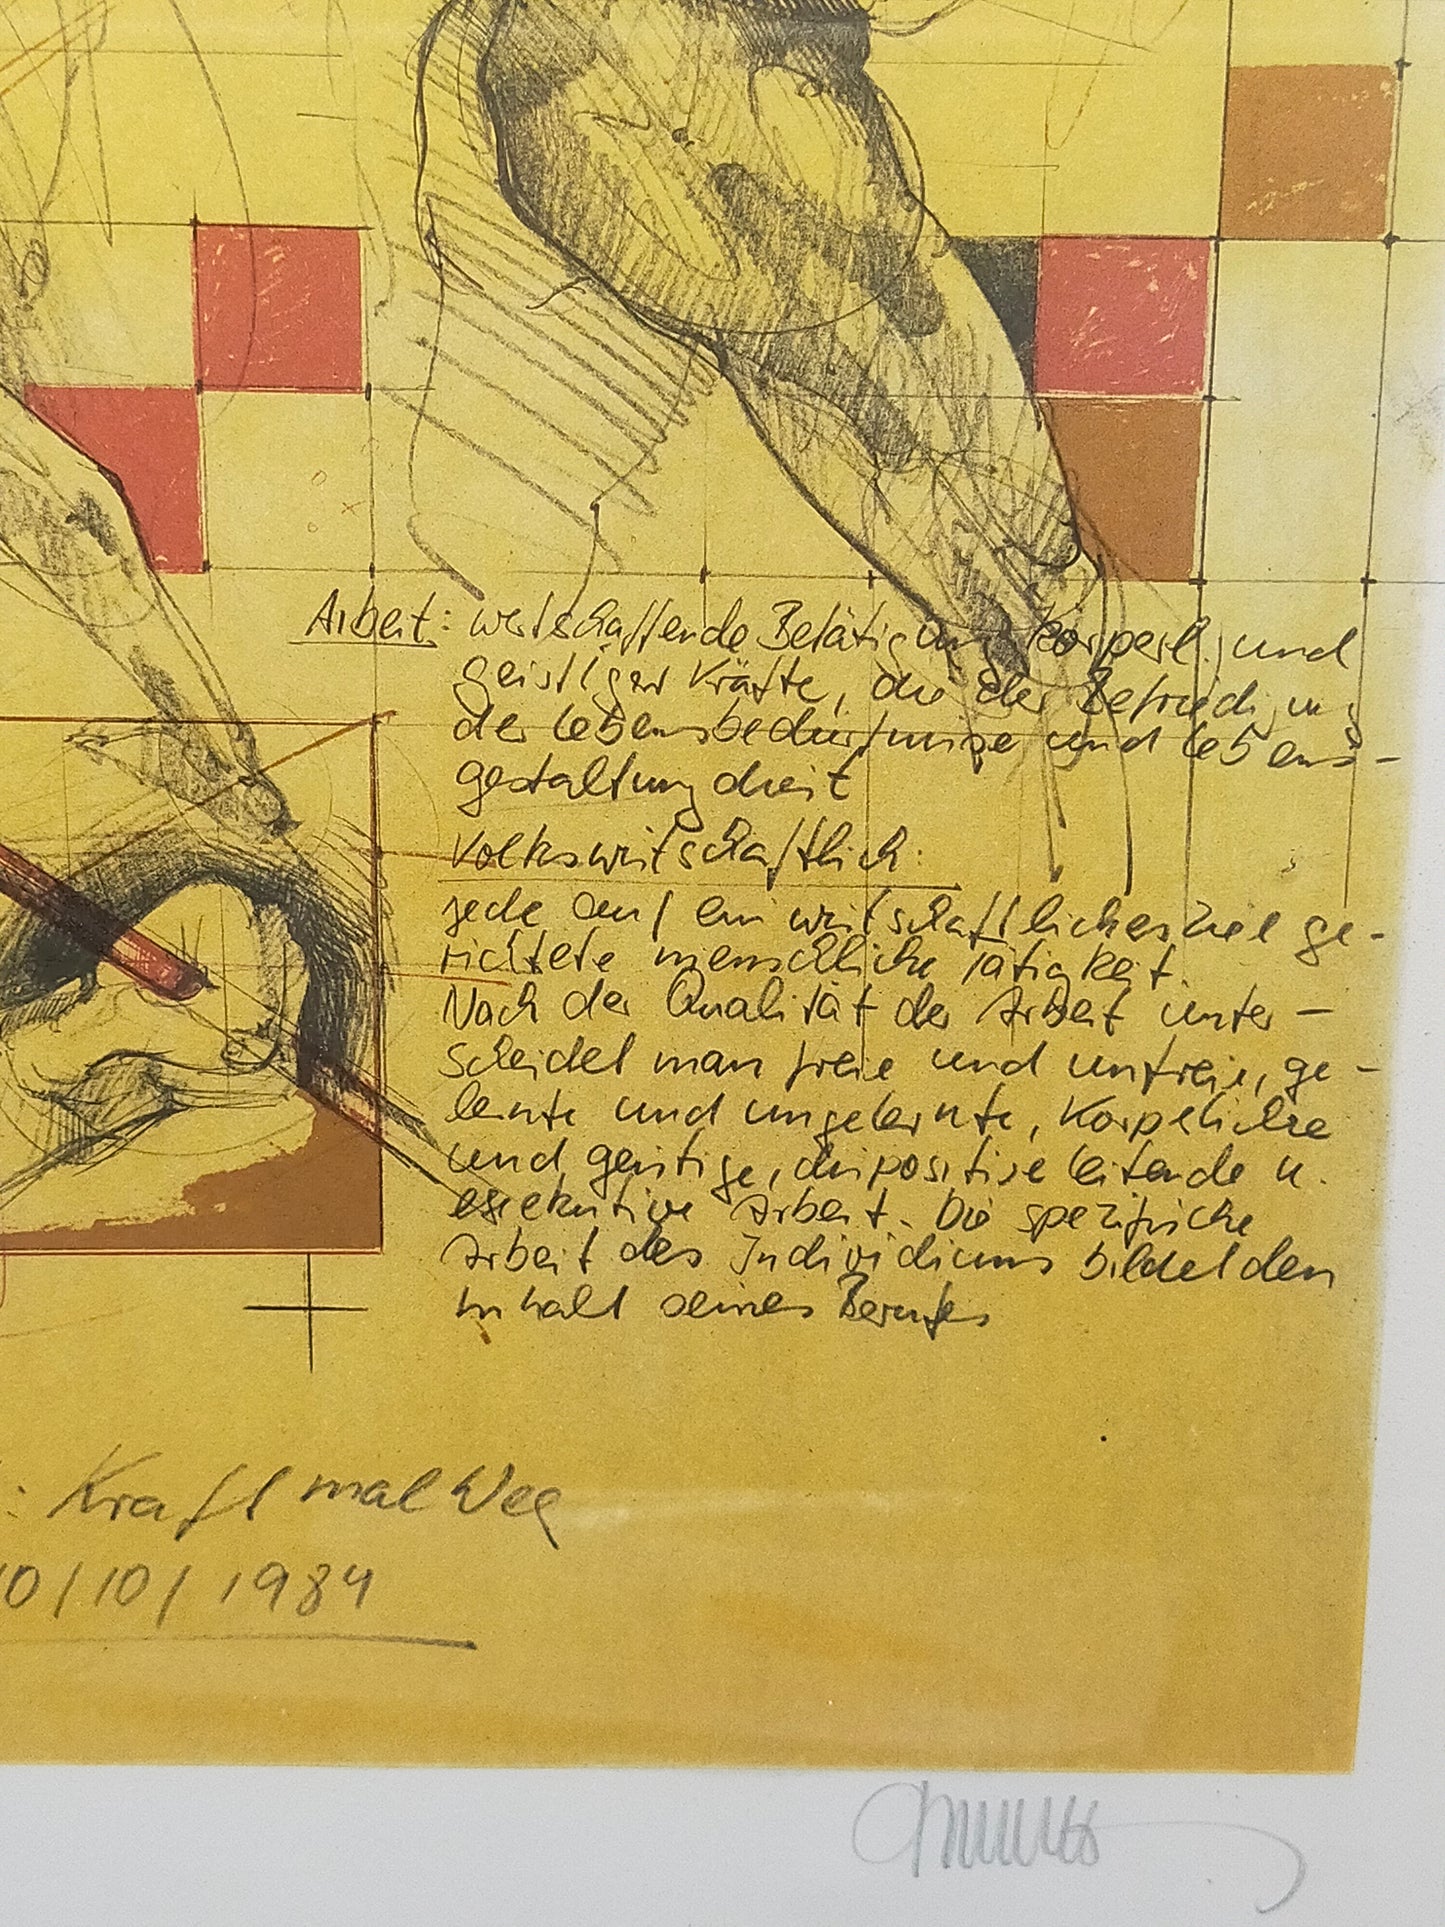 Arbeit: wertschaffende Betätigung körperl. und
geistiger Kräfte, die der Befriedigung
der Lebensbedürfnisse und Lebens-
gestaltung dient
Volkswirtschaftlich:
jede auf ein wirtschaftliches Ziel ge-
richtete menschliche Tätigkeit.
Nach der Qualität der Arbeit unter-
scheidet man freie und unfreie, ge-
lernte und ungelernte, Körperliche
und geistige, dispositive leitende u.
exekutive Arbeit. Die spezifische
Arbeit des Individiums bildet den
Inhalt seines Berufes
: Kraft mal Weg
10/10/1984